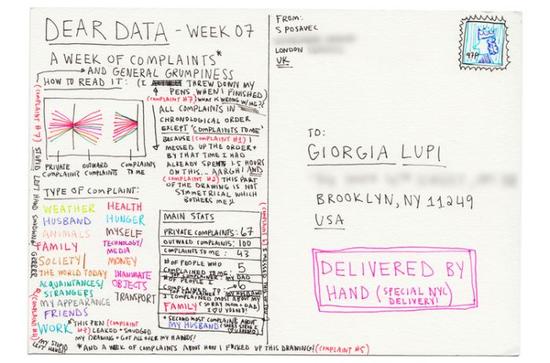 DEAR DATA - WEEK 07
A WEEK OF COMPLAINTS*
AND GENERAL GRUMPINESS
HOW TO READ IT:
(I THREW DOWN MY
PENS WHEN I FINISHED)
ALL COMPLAINTS IN
CHRONOLOGICAL ORDER
EXCEPT 'COMPLAINTS TO ME'
BECAUSE (COMPLAINT #1) I
MESSED UP THE ORDER +
BY THAT TIME I HAD
ALREADY SPENT 5 HOURS
ON THIS... AARGH! AND
(COMPLAINT #2) THIS PART
OF THE DRAWING IS NOT
SYMMETRICAL, WHICH
BOTHERS ME
PRIVATE COMPLAINTS
OUTWARD COMPLAINTS
COMPLAINTS TO ME
TYPE OF COMPLAINT:
WEATHER
HUSBAND
ANIMALS
FAMILY
SOCIETY/
THE WORLD TODAY
ACQUAINTANCES/
STRANGERS
MY APPEARANCE
FRIENDS
WORK
HEALTH
HUNGER
MYSELF
TECHNOLOGY/
MEDIA
MONEY
INANIMATE
OBJECTS
TRANSPORT
MAIN STATS
PRIVATE COMPLAINTS: 67
OUTWARD COMPLAINTS: 100
COMPLAINTS TO ME: 43
# OF PEOPLE WHO
COMPLAINED TO ME: 5
# OF PEOPLE I
COMPLAINED TO: 6
I COMPLAINED MOST ABOUT MY
FAMILY (SORRY MOM + DAD
I LOVE YOU!)
* SECOND MOST COMPLAINED ABOUT
MY HUSBAND
* THIS PEN (COMPLAINT
LEAKED + SMUDGED
MY DRAWING + GOT ALL OVER MY HANDS!
*AND A WEEK OF COMPLAINTS ABOUT HOW I FUCKED UP THIS DRAWING! (COMPLAINT #5)
FROM:
S POSAVEC
LONDON
UK
TO:
GIORGIA LUPI
BROOKLYN, NY 11249
USA
DELIVERED BY
HAND (SPECIAL NYC
DELIVERY!)